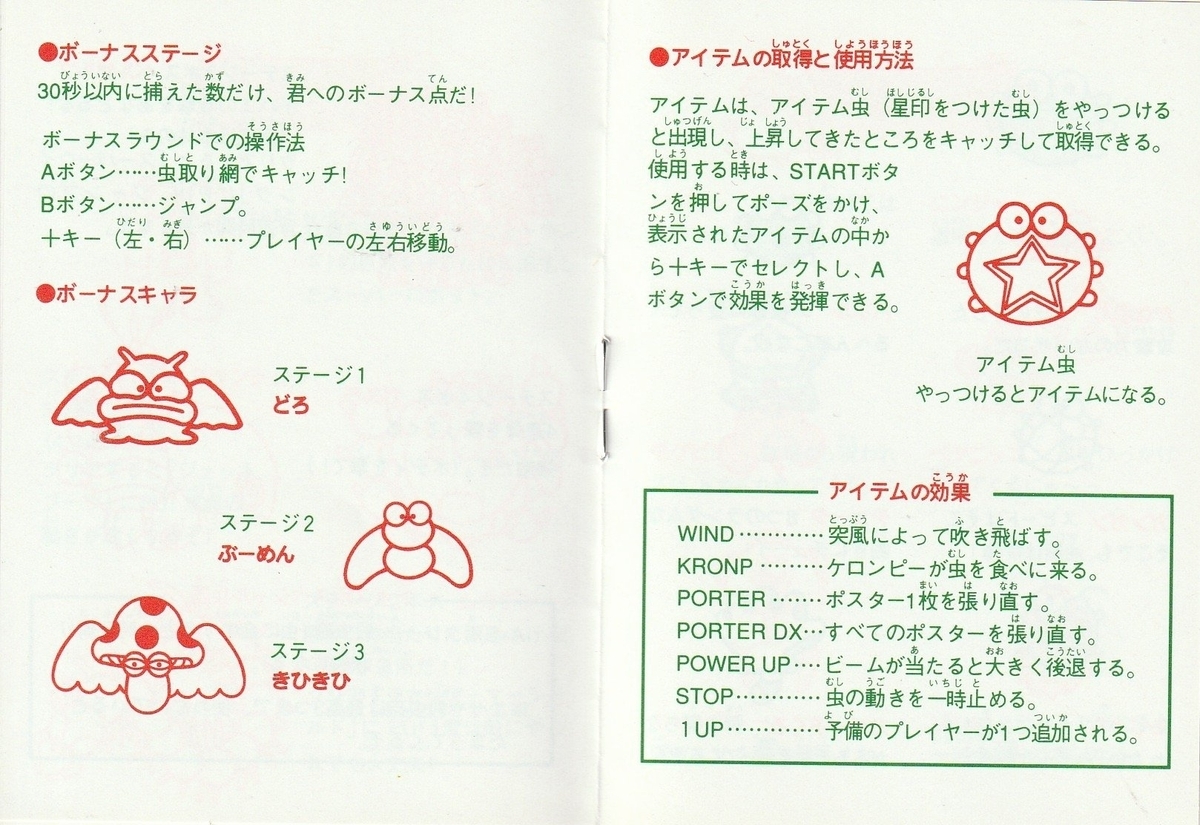 ●ボーナスステージ
30秒以内に捕えた数だけ、君へのボーナス点だ!
ボーナスラウンドでの操作法
Aボタン……虫取り網でキャッチ!
Bボタン……ジャンプ。
＋キー（左・右）……プレイヤーの左右移動。
●ボーナスキャラ
ステージ1
どろ
ステージ2
ぶーめん
ステージ3
きひきひ
●アイテムの取得と使用方法
アイテムは、アイテム虫（星印をつけた虫）をやっつける
と出現し、上昇してきたところをキャッチして取得できる。
使用する時は、STARTボタ
ンを押してポーズをかけ、
表示されたアイテムの中か
ら＋キーでセレクトし、A
ボタンで効果を発揮できる。
アイテム虫
やっつけるとアイテムになる。
アイテムの効果
WIND…………突風によって吹き飛ばす。
KRONP………ケロンピーが虫を食べに来る。
PORTER……ポスター1枚を張り直す。
PORTER DX…すべてのポスターを張り直す。
POWER UP‥‥ビームが当たると大きく後退する。
STOP…………虫の動きを一時止める。
1UP…………予備のプレイヤーが1つ追加される。